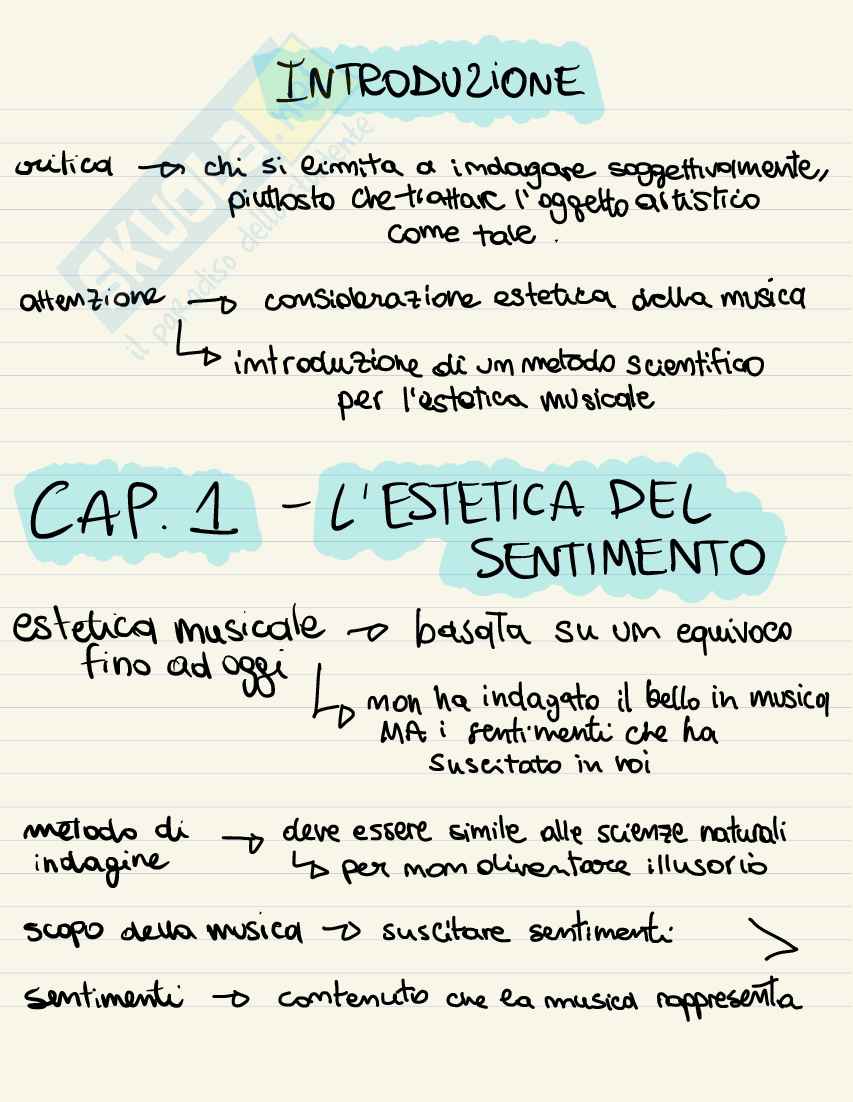 INTRODUZIONE
critica → chi si limita a indagare soggettivamente,
piuttosto che trattare l'oggetto artistico
come tale.
attenzione → considerazione estetica della musica
↳ introduzione di un metodo scientifico
per l'estetica musicale
CAP. 1 - L'ESTETICA DEL
SENTIMENTO
estetica musicale → basata su un equivoco
fino ad oggi
↳ non ha indagato il bello in musica
MA i sentimenti che ha
suscitato in noi
metodo di → deve essere simile alle scienze naturali
indagine ↳ per non diventare illusorio
scopo della musica → suscitare sentimenti >
sentimenti → contenuto che la musica rappresenta
SKUOLA.net
il paradiso dello studente